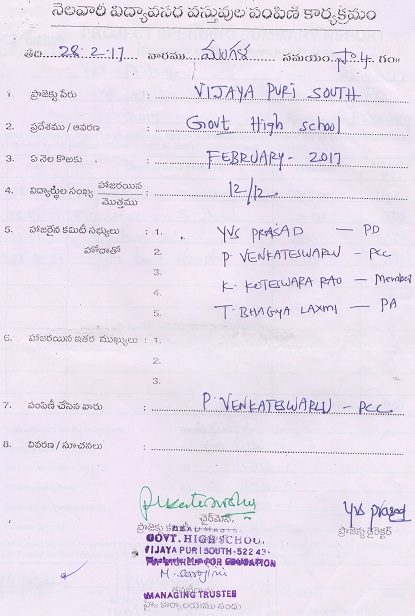 నెలవారీ విద్యావసర వస్తువుల పంపిణి కార్యక్రమం
తేది 28-2-17 వారము మంగళ సమయం సా 4 గం॥
1. ప్రాజెక్టు పేరు : VIJAYA PURI SOUTH
2. ప్రదేశము / ఆవరణ : Govt High school
3. ఏ నెల కొఱకు : FEBRUARY - 2017
4. విద్యార్థుల సంఖ్య హాజరయిన / మొత్తము : 12/12
5. హాజరైన కమిటీ సభ్యులు : 1. YVS PRASAD — PD
హోదాతో 2. P. VENKATESWARLU - PCC
3. K. KOTESWARA RAO - Member
4. T. BHAGYA LAXMI — PA
5.
6. హాజరయిన ఇతర ముఖ్యులు : 1.
2.
3.
7. పంపిణీ చేసిన వారు : P. VENKATESWARLU - PCC.
8. వివరణ / సూచనలు :
చైర్మెన్,
yvs prasad
ప్రాజెక్టు డైరెక్టర్
GOVT. HIGH SCHOOL
VIJAYA PURI SOUTH-522 43
FOR EDUCATION
M. Sarojini
MANAGING TRUSTEE